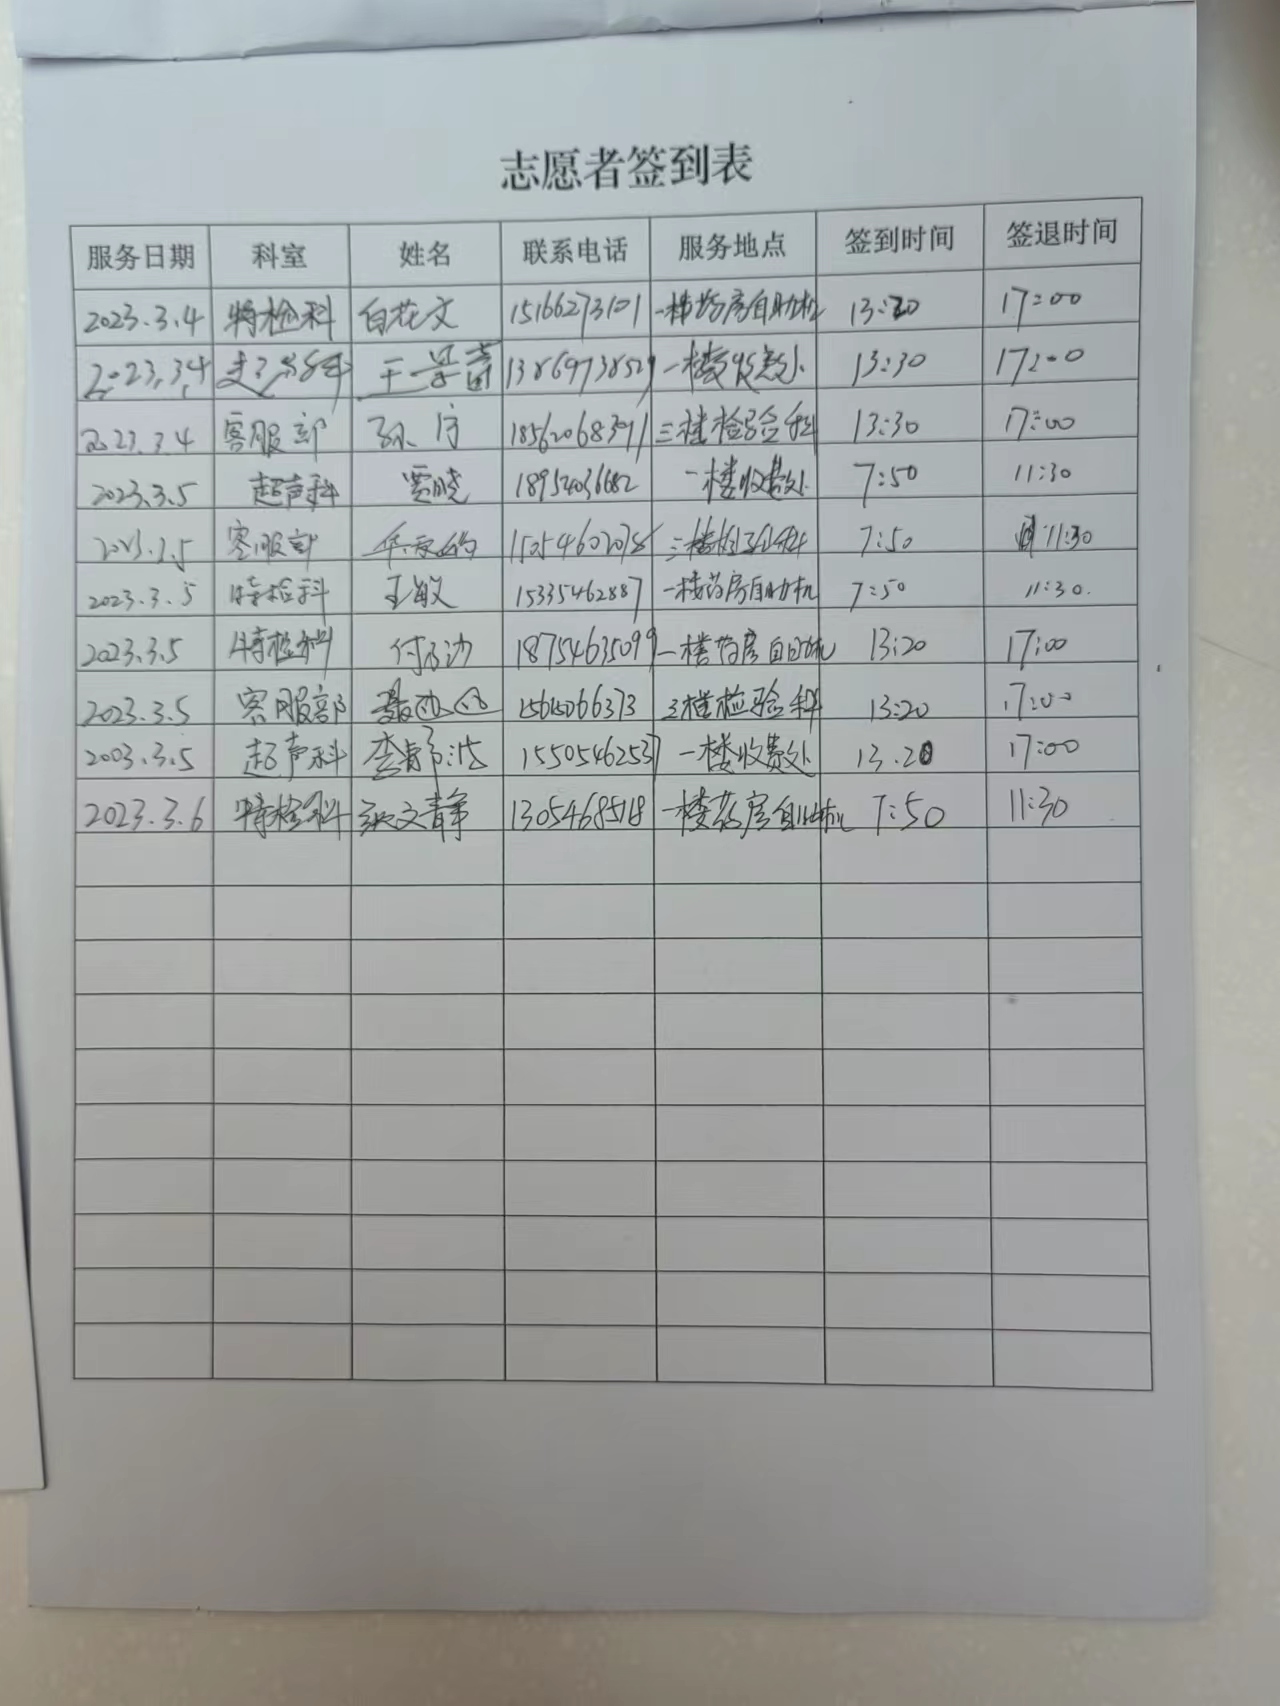 志愿者签到表
服务日期 科室 姓名 联系电话 服务地点 签到时间 签退时间
2023.3.4 特检科 白花文 15166273101 一楼药房自助机 13:20 17:00
2023.3.4 超声科 王景 一楼收费处 13:30 17:00
2023.3.4 客服部 孙 三楼检验科 13:30 17:00
2023.3.5 超声科 贾晓 18954036682 一楼收费处 7:50 11:30
2023.3.5 客服部 三楼检验科 7:50 11:30
2023.3.5 特检科 王敏 15335462887 一楼药房自助机 7:50 11:30
2023.3.5 特检科 付 18754635099 一楼药房自助机 13:20 17:00
2023.3.5 客服部 三楼检验科 13:20 17:00
2003.3.5 超声科 李 15505462537 一楼收费处 13.20 17:00
2023.3.6 特检科 文静 1305468518 一楼药房自助机 7:50 11:30